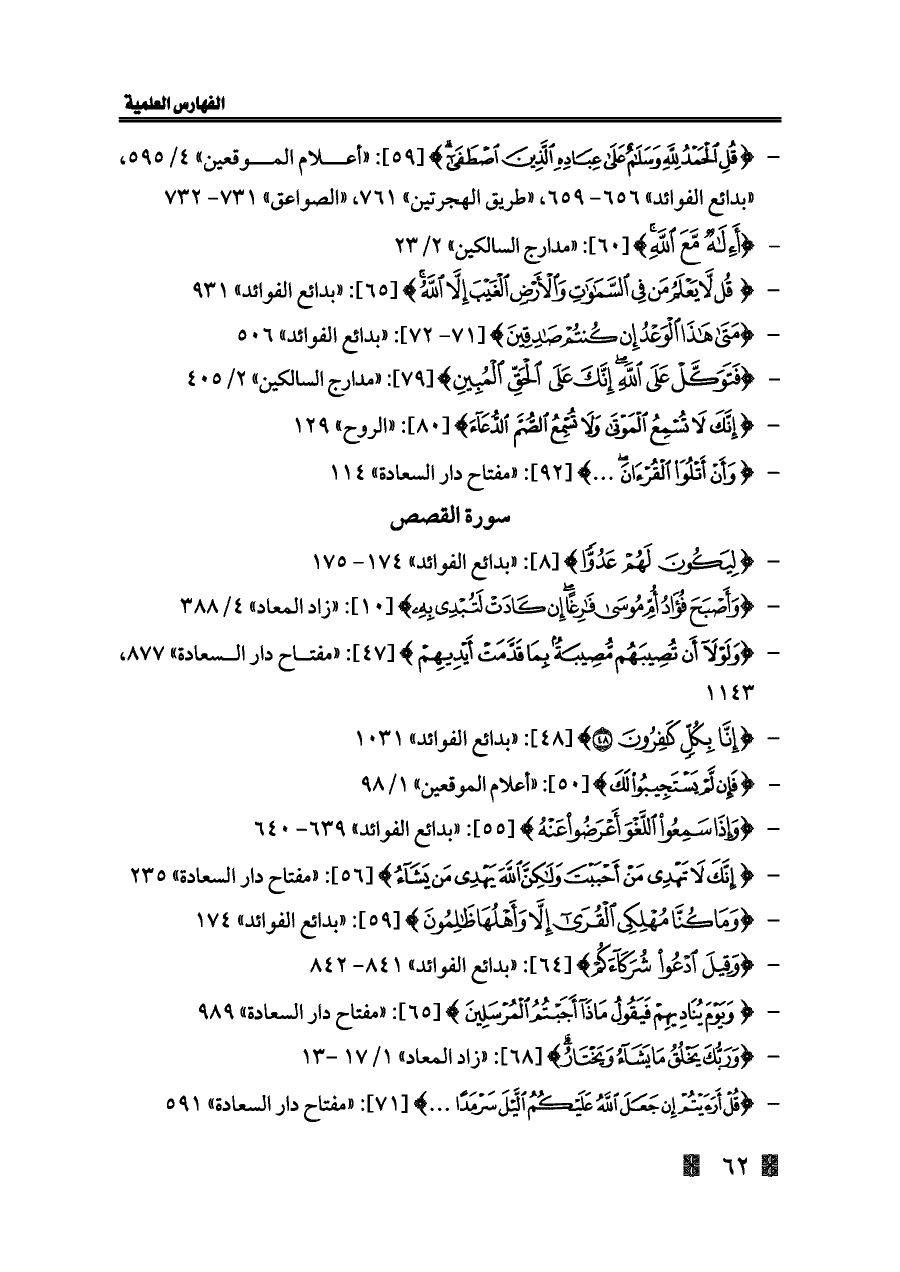 الفهارس العلمية
- ﴿قُلِ ٱلْحَمْدُ لِلَّهِ وَسَلَٰمٌ عَلَىٰ عِبَادِهِ ٱلَّذِينَ ٱصْطَفَىٰٓ ۗ﴾ [٥٩]: «أعـــلام المـــوقعين» ٤/ ٥٩٥،
«بدائع الفوائد» ٦٥٦- ٦٥٩، «طريق الهجرتين» ٧٦١، «الصواعق» ٧٣١- ٧٣٢
- ﴿أَءِلَٰهٌ مَّعَ ٱللَّهِ ۚ﴾ [٦٠]: «مدارج السالكين» ٢/ ٢٣
- ﴿قُل لَّا يَعْلَمُ مَن فِى ٱلسَّمَٰوَٰتِ وَٱلْأَرْضِ ٱلْغَيْبَ إِلَّا ٱللَّهُ ۚ﴾ [٦٥]: «بدائع الفوائد» ٩٣١
- ﴿مَتَىٰ هَٰذَا ٱلْوَعْدُ إِن كُنتُمْ صَٰدِقِينَ﴾ [٧١- ٧٢]: «بدائع الفوائد» ٥٠٦
- ﴿فَتَوَكَّلْ عَلَى ٱللَّهِ ۖ إِنَّكَ عَلَى ٱلْحَقِّ ٱلْمُبِينِ﴾ [٧٩]: «مدارج السالكين» ٢/ ٤٠٥
- ﴿إِنَّكَ لَا تُسْمِعُ ٱلْمَوْتَىٰ وَلَا تُسْمِعُ ٱلصُّمَّ ٱلدُّعَآءَ﴾ [٨٠]: «الروح» ١٢٩
- ﴿وَأَنْ أَتْلُوَا۟ ٱلْقُرْءَانَ ۖ ...﴾ [٩٢]: «مفتاح دار السعادة» ١١٤
سورة القصص
- ﴿لِيَكُونَ لَهُمْ عَدُوًّا﴾ [٨]: «بدائع الفوائد» ١٧٤- ١٧٥
- ﴿وَأَصْبَحَ فُؤَادُ أُمِّ مُوسَىٰ فَٰرِغًا ۖ إِن كَادَتْ لَتُبْدِى بِهِۦ﴾ [١٠]: «زاد المعاد» ٤/ ٣٨٨
- ﴿وَلَوْلَآ أَن تُصِيبَهُم مُّصِيبَةٌۢ بِمَا قَدَّمَتْ أَيْدِيهِمْ﴾ [٤٧]: «مفتـاح دار الـسعادة» ٨٧٧،
١١٤٣
- ﴿إِنَّا بِكُلٍّ كَٰفِرُونَ ۝٤٨﴾ [٤٨]: «بدائع الفوائد» ١٠٣١
- ﴿فَإِن لَّمْ يَسْتَجِيبُوا۟ لَكَ﴾ [٥٠]: «أعلام الموقعين» ١/ ٩٨
- ﴿وَإِذَا سَمِعُوا۟ ٱللَّغْوَ أَعْرَضُوا۟ عَنْهُ﴾ [٥٥]: «بدائع الفوائد» ٦٣٩- ٦٤٠
- ﴿إِنَّكَ لَا تَهْدِى مَنْ أَحْبَبْتَ وَلَٰكِنَّ ٱللَّهَ يَهْدِى مَن يَشَآءُ﴾ [٥٦]: «مفتاح دار السعادة» ٢٣٥
- ﴿وَمَا كُنَّا مُهْلِكِى ٱلْقُرَىٰٓ إِلَّا وَأَهْلُهَا ظَٰلِمُونَ﴾ [٥٩]: «بدائع الفوائد» ١٧٤
- ﴿وَقِيلَ ٱدْعُوا۟ شُرَكَآءَكُمْ﴾ [٦٤]: «بدائع الفوائد» ٨٤١- ٨٤٢
- ﴿وَيَوْمَ يُنَادِيهِمْ فَيَقُولُ مَاذَآ أَجَبْتُمُ ٱلْمُرْسَلِينَ﴾ [٦٥]: «مفتاح دار السعادة» ٩٨٩
- ﴿وَرَبُّكَ يَخْلُقُ مَا يَشَآءُ وَيَخْتَارُ ۗ﴾ [٦٨]: «زاد المعاد» ١/ ١٧ -١٣
- ﴿قُلْ أَرَءَيْتُمْ إِن جَعَلَ ٱللَّهُ عَلَيْكُمُ ٱلَّيْلَ سَرْمَدًا ...﴾ [٧١]: «مفتاح دار السعادة» ٥٩١
٦٢